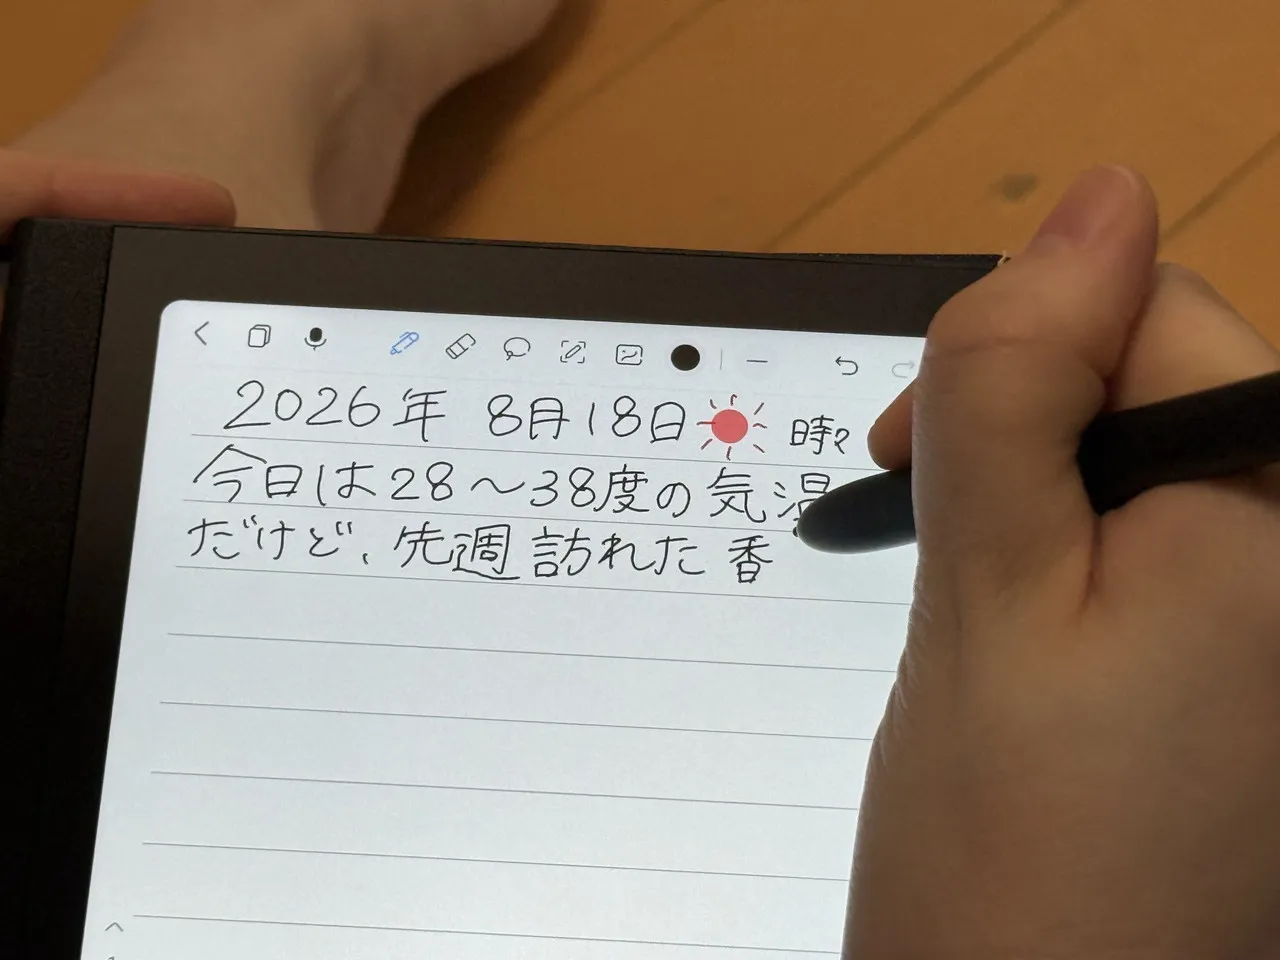 2026年 8月18日 時々
今日は28〜38度の気温
だけど、先週訪れた香